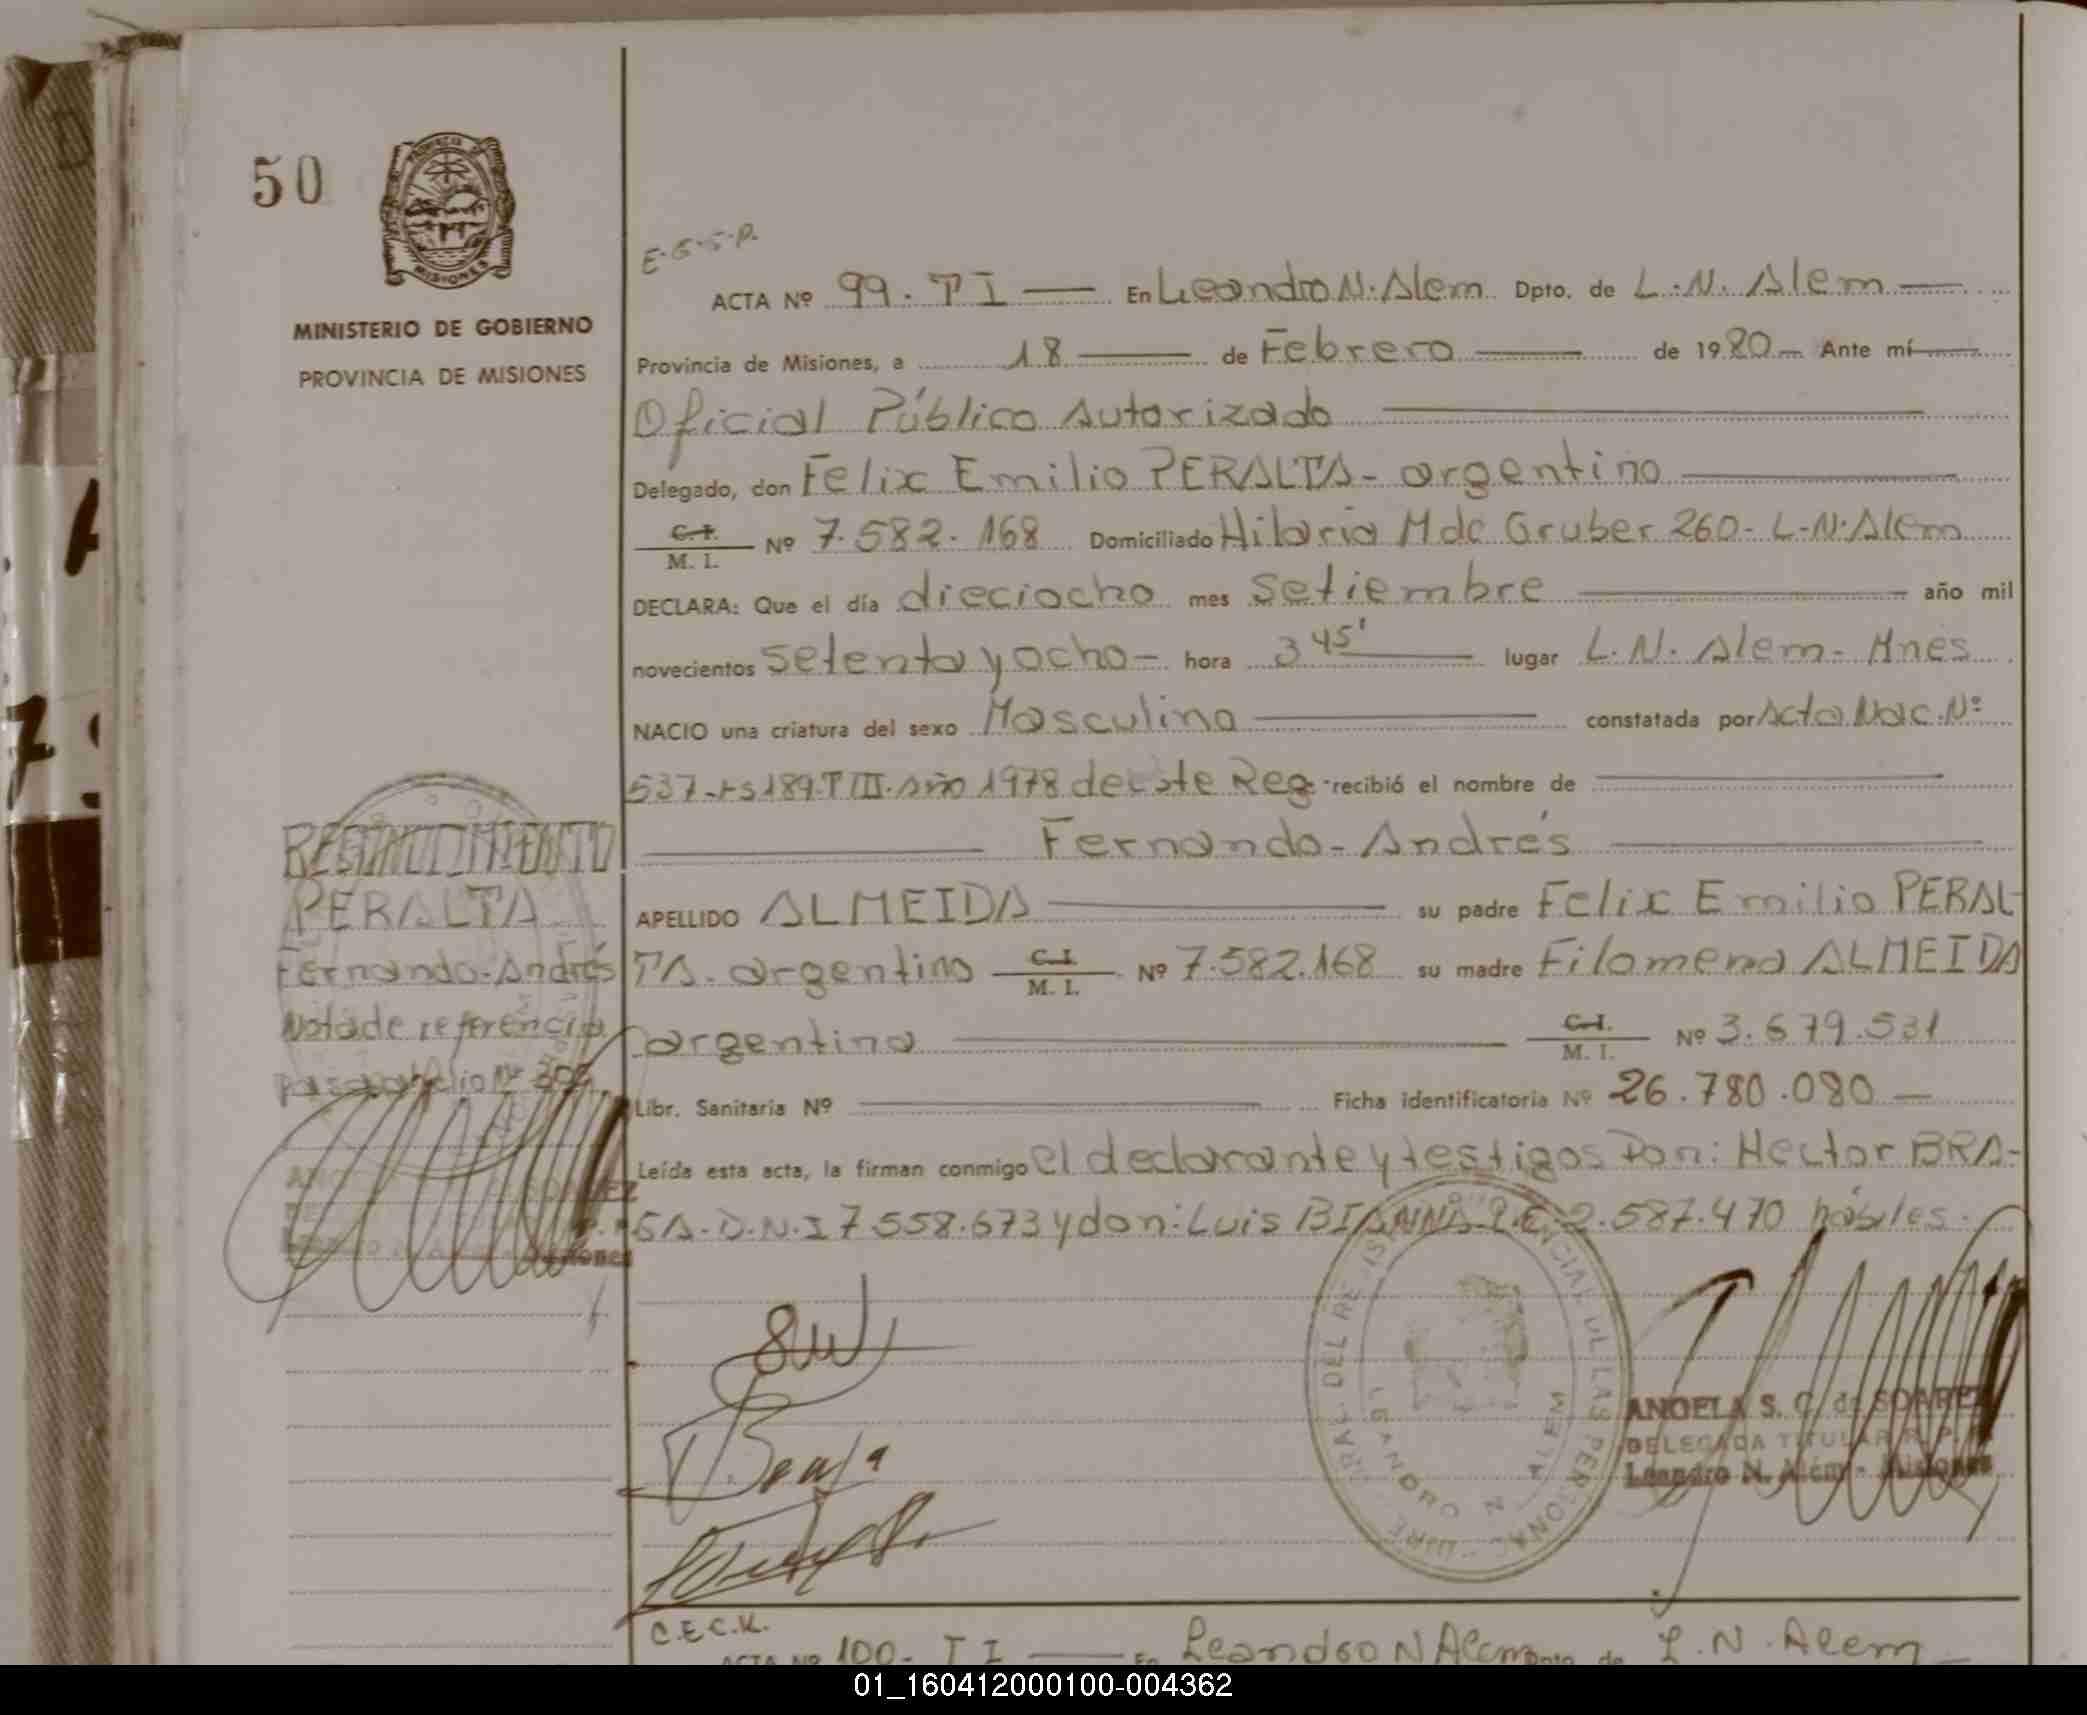 50
PROVINCIA DE
MISIONES
MINISTERIO DE GOBIERNO
PROVINCIA DE MISIONES
RECONOCIMIENTO
PERALTA
Fernando-Andrés
Nota de referencia
E.G.S.P.
ACTA Nº 99. T I — En Leandro N. Alem Dpto. de L.N. Alem —
Provincia de Misiones, a 18 — de Febrero — de 1980 — Ante mí —
Oficial Público Autorizado
Delegado, don Felix Emilio PERALTA - argentino
C.I. / M. I. Nº 7.582.168 Domiciliado Hilaria M de Gruber 260 - L-N. Alem
DECLARA: Que el día dieciocho mes Setiembre — año mil
novecientos setenta y ocho — hora 3 45' — lugar L.N. Alem - Mnes
NACIO una criatura del sexo Masculino — constatada por Acta Nac. Nº
537-Fs 189. T III. Año 1978 de este Reg. recibió el nombre de —
— Fernando-Andrés —
APELLIDO ALMEIDA — su padre Felix Emilio PERAL-
TA. argentino C.I. / M. I. Nº 7.582.168 su madre Filomena ALMEIDA
argentina — C.I. / M. I. Nº 3.679.531
Libr. Sanitaria Nº — Ficha identificatoria Nº 26.780.080 —
Leída esta acta, la firman conmigo el declarante y testigos Don: Hector BRA-
SA. D.N.I 7.558.673 y don: Luis BIANNA L.E. 2.587.470 hábiles.
LEANDRO N ALEM
ANGELA S. C. de SOAREZ
DELEGADA TITULAR R. P. P.
Leandro N. Alem - Misiones
C.E.C.K.
ACTA Nº 100- T I — En Leandro N Alem Dpto. de L.N. Alem —
01_160412000100-004362